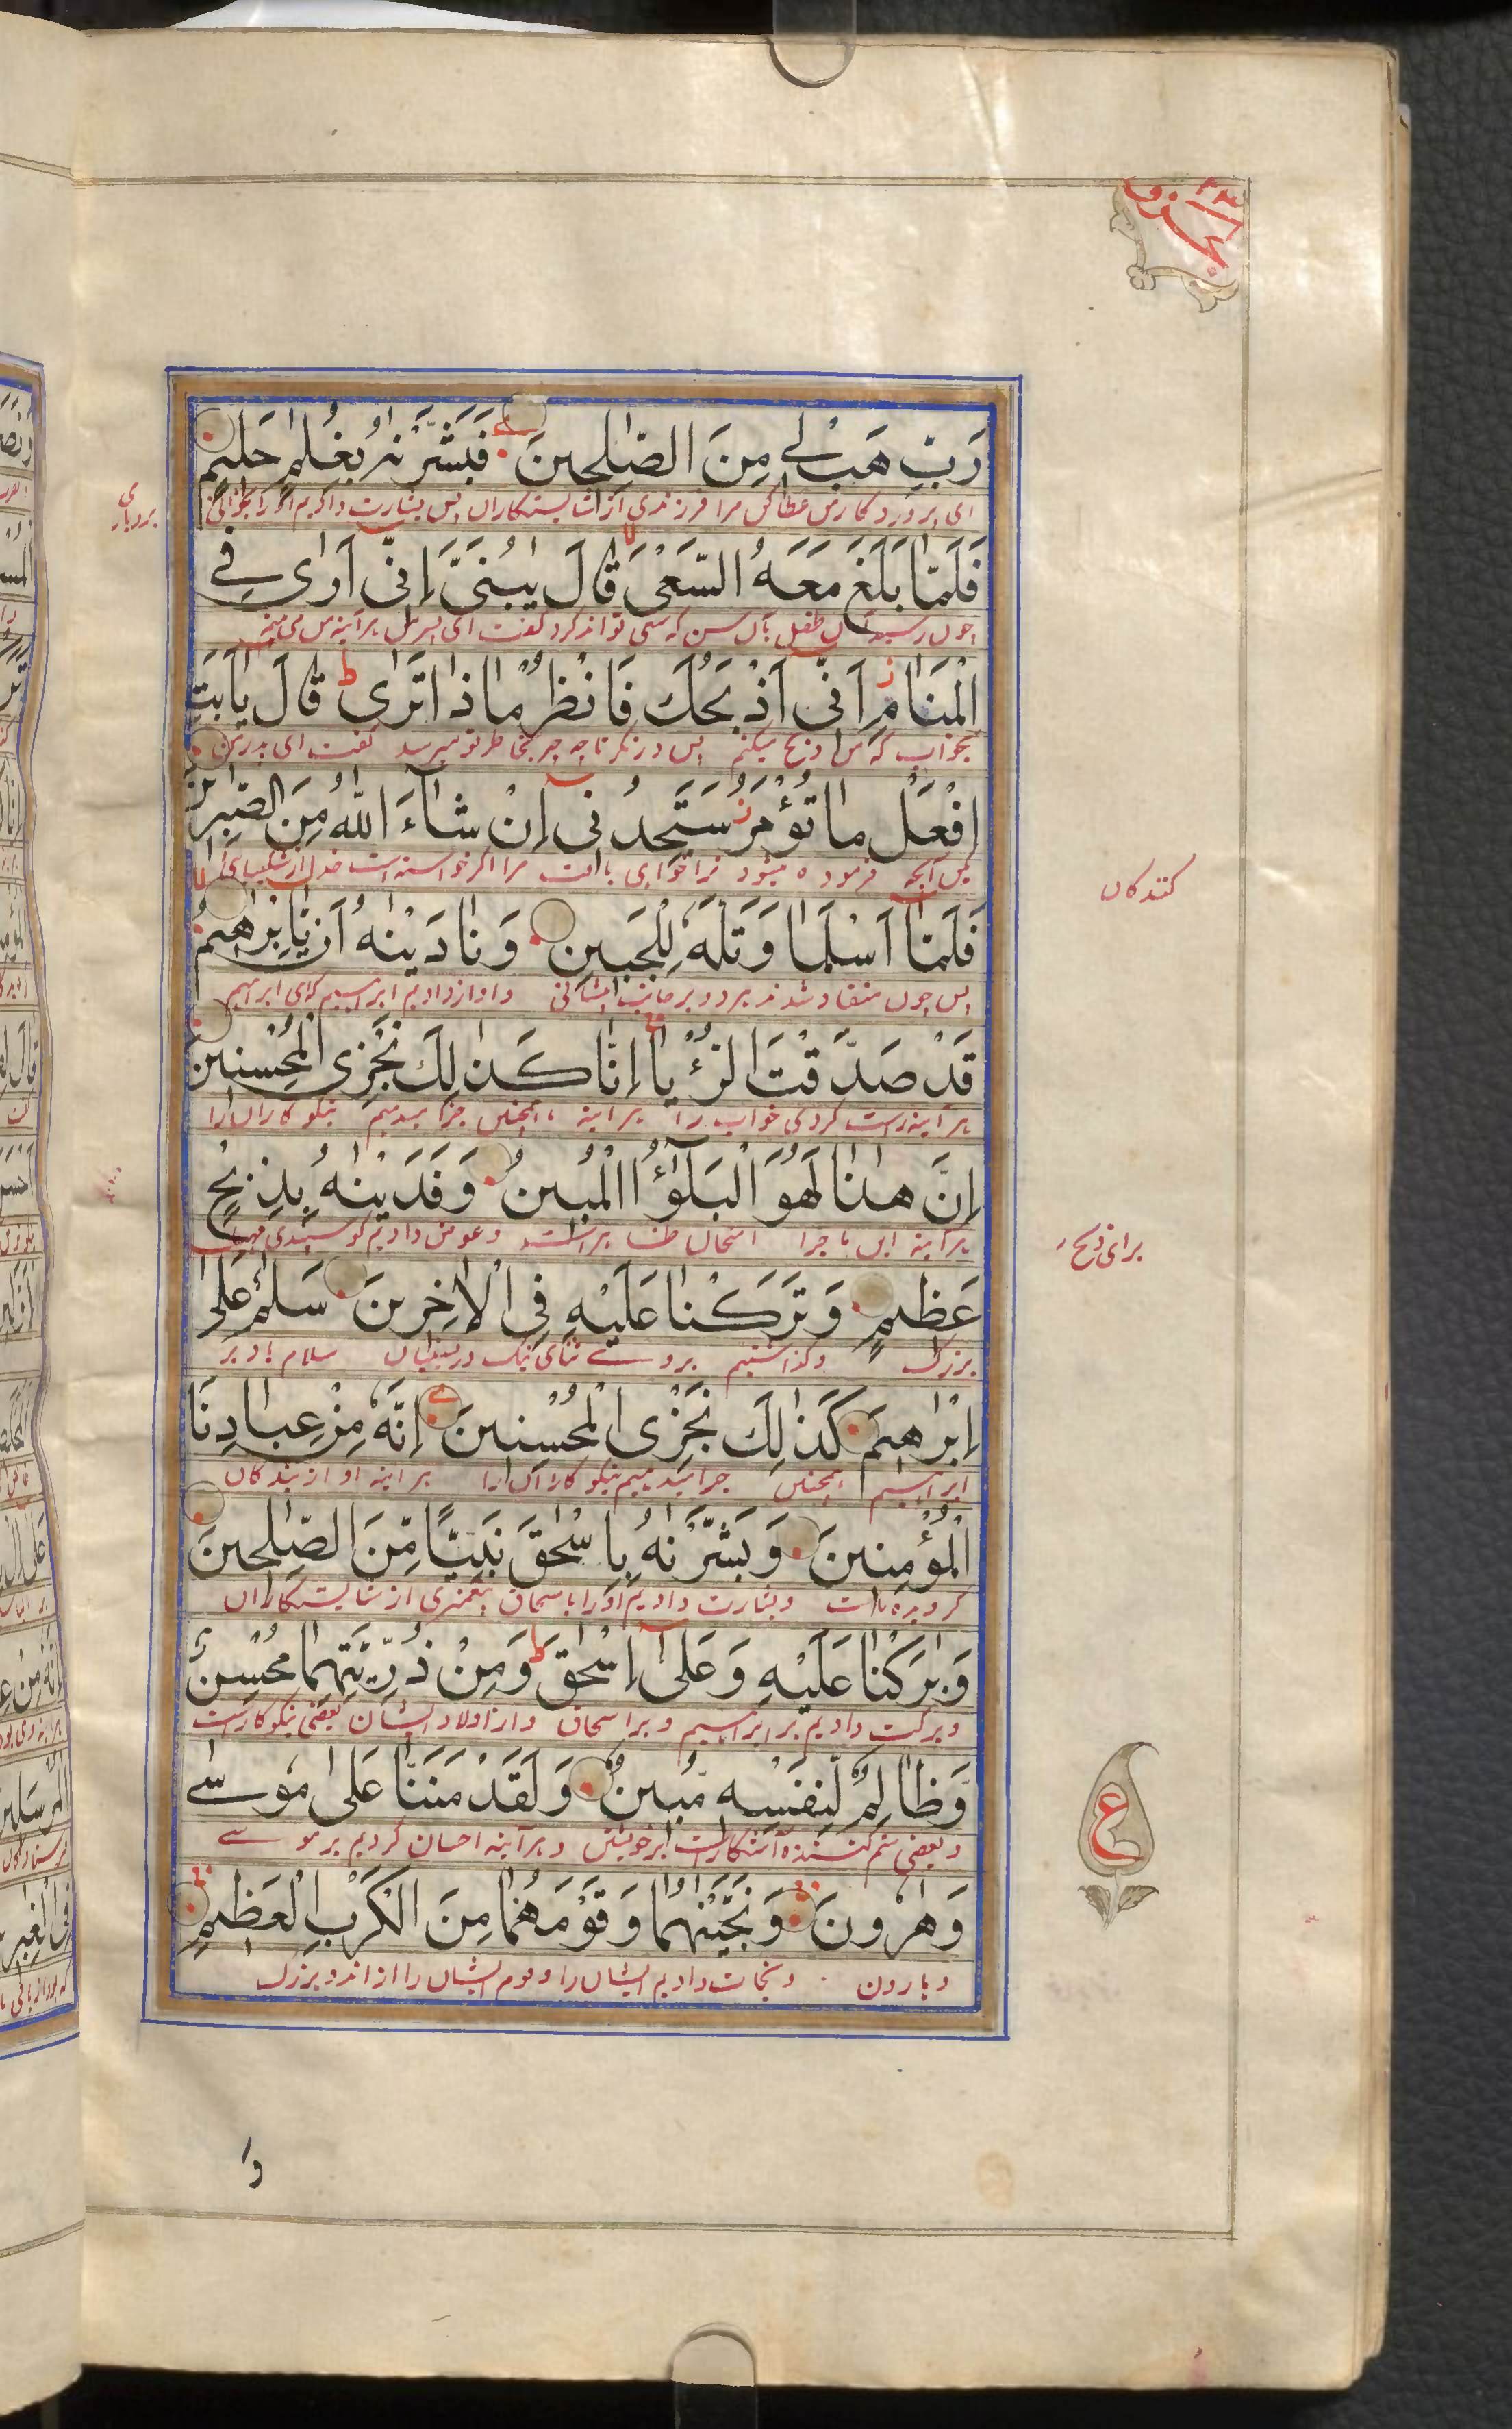 الجزو ٢٣
رَبِّ هَبْ لِے مِنَ الصّٰلِحِينَ فَبَشَّرْنٰهُ بِغُلٰمٍ حَلِيمٍ
ای پروردگار من عطا کن مرا فرزندی از شایستگاران پس بشارت دادیم او را بجوانی
بردباری
فَلَمَّا بَلَغَ مَعَهُ السَّعْیَ قَالَ يٰبُنَیَّ اِنِّی اَرٰی فِے
چون رسید آن طفل بآن سن که سعی تواند کرد گفت ای پسر من هرآینه من می بینم
الْمَنَامِ اَنِّی اَذْبَحُكَ فَانْظُرْ مَاذَا تَرٰی قَالَ يٰاَبَتِ
بخواب که من ذبح میکنم پس درنگر تا چه چیز بخاطر تو میرسد گفت ای پدر من
افْعَلْ مَا تُؤْمَرُ سَتَجِدُنِی اِنْ شَآءَ اللّٰهُ مِنَ الصّٰبِرِينَ
بکن آنچه فرموده میشود ترا خواهی یافت مرا اگر خواسته است خدا از شکیبایی
کنندگان
فَلَمَّا اَسْلَمَا وَتَلَّهٗ لِلْجَبِينِ وَنَادَيْنٰهُ اَنْ يّٰاِبْرٰهِيمُ
پس چون منقاد شدند هر دو بر جانب پیشانی و آواز دادیم ابراهیم که ای ابراهیم
قَدْ صَدَّقْتَ الرُّءْيَا اِنَّا كَذٰلِكَ نَجْزِی الْمُحْسِنِينَ
هرآینه راست کردی خواب را هرآینه ما همچنین جزا میدهیم نیکوکاران را
اِنَّ هٰذَا لَهُوَ الْبَلٰٓؤُا الْمُبِينُ وَفَدَيْنٰهُ بِذِبْحٍ
هرآینه این ماجرا امتحان ظاهر است و عوض دادیم گوسپندی مهیا
برای ذبح
عَظِيمٍ وَتَرَكْنَا عَلَيْهِ فِی الْاٰخِرِينَ سَلٰمٌ عَلٰی
بزرگ و گذاشتیم بر وے ثنای نیک در پسینیان سلام باد بر
اِبْرٰهِيمَ كَذٰلِكَ نَجْزِی الْمُحْسِنِينَ اِنَّهٗ مِنْ عِبَادِنَا
ابراهیم همچنین جزا میدهیم نیکوکاران را هرآینه او از بندگان
الْمُؤْمِنِينَ وَبَشَّرْنٰهُ بِاِسْحٰقَ نَبِيًّا مِّنَ الصّٰلِحِينَ
گرویده ماست و بشارت دادیم او را باسحاق پیغمبری از شایستگاران
وَبٰرَكْنَا عَلَيْهِ وَعَلٰٓی اِسْحٰقَ وَمِنْ ذُرِّيَّتِهِمَا مُحْسِنٌ
و برکت دادیم بر ابراهیم و بر اسحاق و از اولاد ایشان بعضی نیکوکار است
وَّظَالِمٌ لِّنَفْسِهٖ مُبِينٌ وَلَقَدْ مَنَنَّا عَلٰی مُوسٰے
و بعضی ستم کننده آشکار است بر خویشتن و هرآینه احسان کردیم بر موسے
ع
وَهٰرُونَ وَنَجَّيْنٰهُمَا وَقَوْمَهُمَا مِنَ الْكَرْبِ الْعَظِيمِ
و هارون و نجات دادیم ایشان را و قوم ایشان را از اندوه بزرگ
وَ